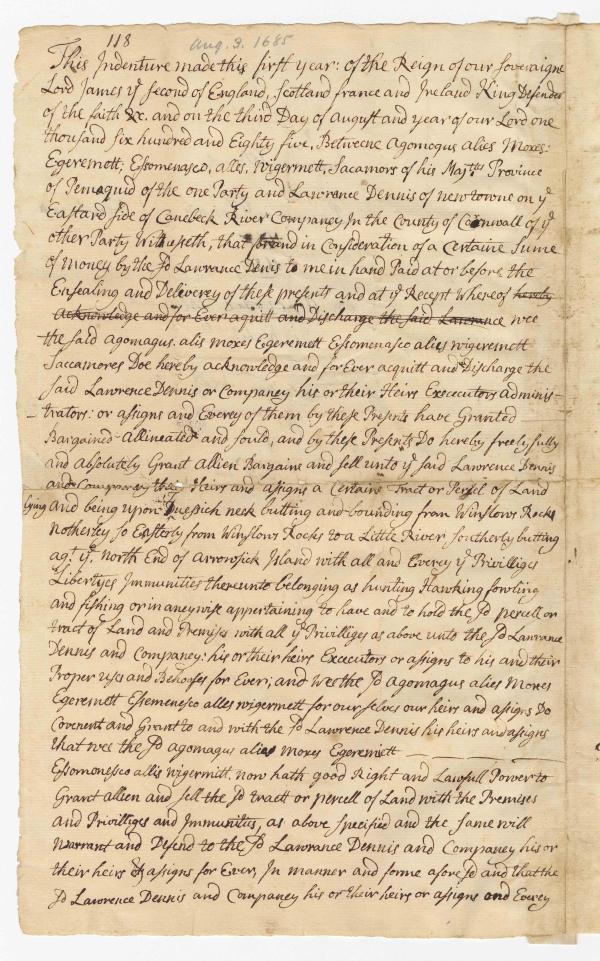 118
Aug. 3. 1685
This Indenture made this first year: of the Reign of our Soveraigne
Lord James ye second of England, Scotland france and Ireland King Defender
of the faith &c. and on the third Day of August and year of our Lord one
thousand six hundred and Eighty five, Betweene Agomogus alies Moxes:
Egeremett; Essomenasco, alles, Wigermett, Sacamors of his Majtis Province
of Pemaquid of the one Party and Lawrence Dennis of new towne on ye
Eastard side of Canebeck River Companey In the County of Cornwall of ye
other Party Wittnesseth, that for and in Consideration of a Certaine Sume
of Money by the sd Lawrance Denis to me in hand Paid at or before the
Ensealing and Deliverey of these presents and at ye Recept Whereof hereby
acknowledge and for Ever aquitt and Discharge the said Lawrance wee
the said agomagus. alis moxes Egeremett Essomenasco alies wigeremett
Saccamores Doe hereby acknowledge and for Ever acquitt and Discharge the
said Lawrence Dennis or Companey his or their Heirs Exececutors adminis-
-trators: or assigns and Everey of them by these Presents have Granted
Bargained Allineated and sould, and by these Presents Do hereby freely fully
and absolutely Grant allien Bargaine and sell unto ye said Lawrence Dennis
and Companey their Heirs and assigns a Certaine Tract or Persel of Land
lying and being upon neck butting and bounding from Winslows Rocks
Notherley so Easterly from Winslows Rocks to a Little River, Southerly butting
agt ye. North End of Arrowsick Island with all and Everey ye Privilliges
Libertyes Immunities thereunto belonging as hunting Hawking fowling
and fishing or in aney wise appertaining to have and to hold the sd percell or
tract of Land and Premises with all ye Privilliges as above unto the sd Lawrance
Dennis and Companey: his or their heirs Executors or assigns to his and their
Proper uses and Behoofes for Ever; and Wee the sd agomagus alies Moxes
Egeremett Essemenesco alles wigermett for ourselves our heirs and assigns Do
Covenent and Grant to and with the sd Lawrence Dennis his heirs and assigns
that wee the sd agomagus alias moxes Egeremett
Essomonesco allis wigermitt. now hath good Right and Lawfull Power to
Grant allien and sell the sd tract or percell of Land with the Premises
and Privilliges and Immunitus, as above specified and the same will
Warrant and Defend to the sd Lawrance Dennis and Companey his or
their heirs assigns for Ever, In manner and forme afore sd and that the
sd Lawrence Dennis and Companey his or their heirs or assigns and Everey